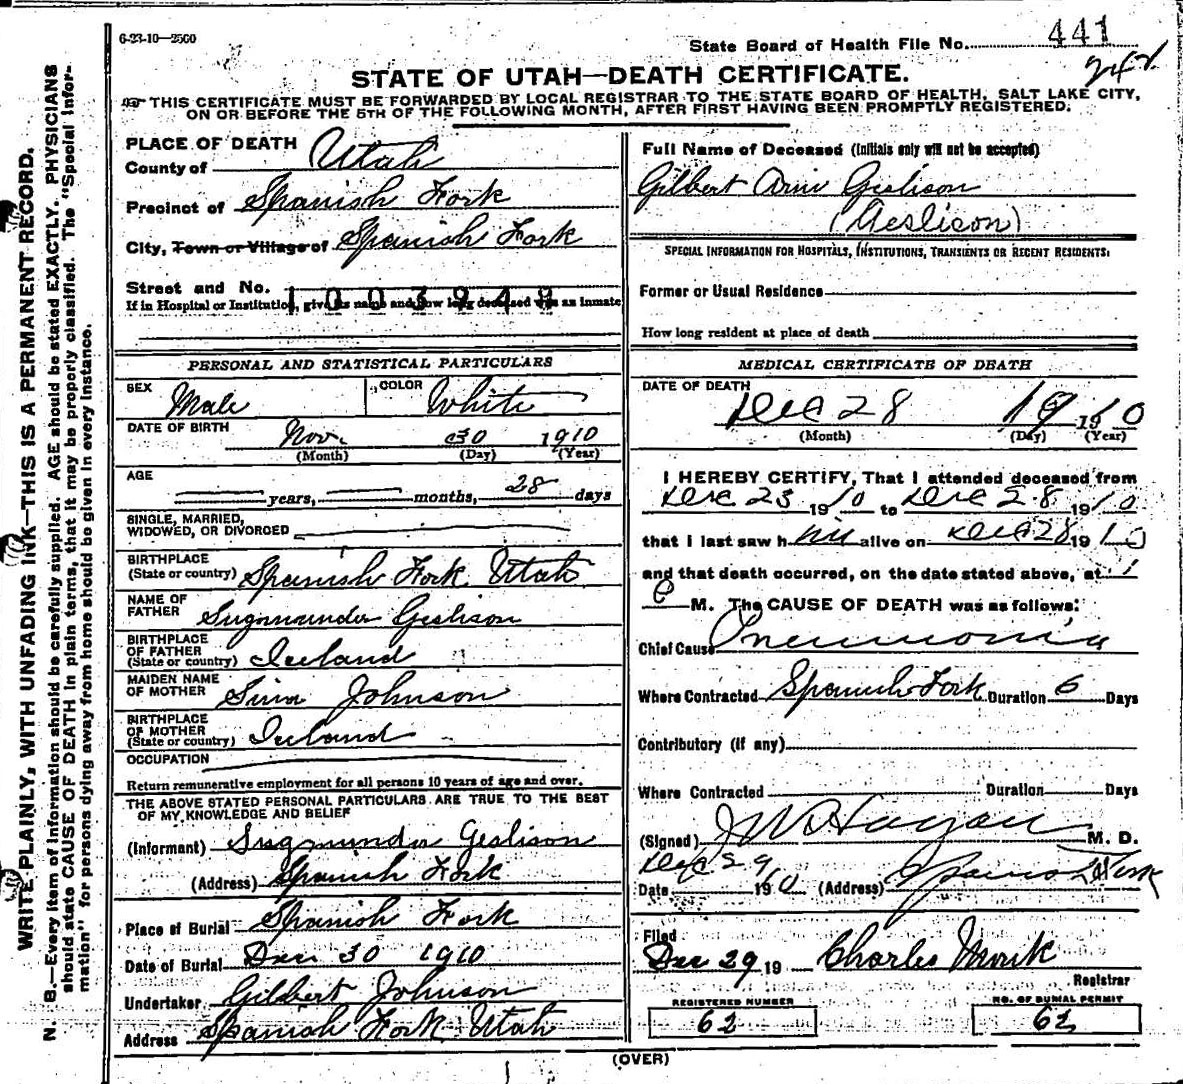 6-23-10—2500
State Board of Health File No. 441
242
STATE OF UTAH—DEATH CERTIFICATE.
THIS CERTIFICATE MUST BE FORWARDED BY LOCAL REGISTRAR TO THE STATE BOARD OF HEALTH, SALT LAKE CITY,
ON OR BEFORE THE 5TH OF THE FOLLOWING MONTH, AFTER FIRST HAVING BEEN PROMPTLY REGISTERED.
WRITE PLAINLY, WITH UNFADING INK—THIS IS A PERMANENT RECORD.
N. B.—Every item of information should be carefully supplied. AGE should be stated EXACTLY. PHYSICIANS
should state CAUSE OF DEATH in plain terms, that it may be properly classified. The "Special Infor-
mation" for persons dying away from home should be given in every instance.
PLACE OF DEATH
County of Utah
Precinct of Spanish Fork
City, Town or Village of Spanish Fork
Street and No.
1003948
If in Hospital or Institution, give its name and how long deceased was an inmate
PERSONAL AND STATISTICAL PARTICULARS
SEX Male COLOR White
DATE OF BIRTH Nov. 30 1910
(Month) (Day) (Year)
AGE
years, months, 28 days
SINGLE, MARRIED,
WIDOWED, OR DIVORCED
BIRTHPLACE
(State or country) Spanish Fork Utah
NAME OF
FATHER Sugmundur Geslison
BIRTHPLACE
OF FATHER
(State or country) Iceland
MAIDEN NAME
OF MOTHER Sina Johnson
BIRTHPLACE
OF MOTHER
(State or country) Iceland
OCCUPATION
Return remunerative employment for all persons 10 years of age and over.
THE ABOVE STATED PERSONAL PARTICULARS ARE TRUE TO THE BEST
OF MY KNOWLEDGE AND BELIEF
(Informant) Sugmundur Geslison
(Address) Spanish Fork
Place of Burial Spanish Fork
Date of Burial Dec 30 1910
Undertaker Gilbert Johnson
Address Spanish Fork Utah
Full Name of Deceased (Initials only will not be accepted)
Gilbert Geslison
(Geslison)
SPECIAL INFORMATION FOR HOSPITALS, INSTITUTIONS, TRANSIENTS OR RECENT RESIDENTS:
Former or Usual Residence
How long resident at place of death
MEDICAL CERTIFICATE OF DEATH
DATE OF DEATH
Dec 28 19 1910
(Month) (Day) (Year)
I HEREBY CERTIFY, That I attended deceased from
Dec 23 1910 to Dec 28 1910
that I last saw him alive on Dec 28 1910
and that death occurred, on the date stated above, at 1
P M. The CAUSE OF DEATH was as follows:
Chief Cause Pneumonia
Where Contracted Spanish Fork Duration 6 Days
Contributory (if any)
Where Contracted Duration Days
(Signed) J W Hagan M. D.
Date Dec 29 1910 (Address) Spanish Fork
Filed
Dec 29 19 Charles Monk
Registrar
REGISTERED NUMBER
62
NO. OF BURIAL PERMIT
62
(OVER)